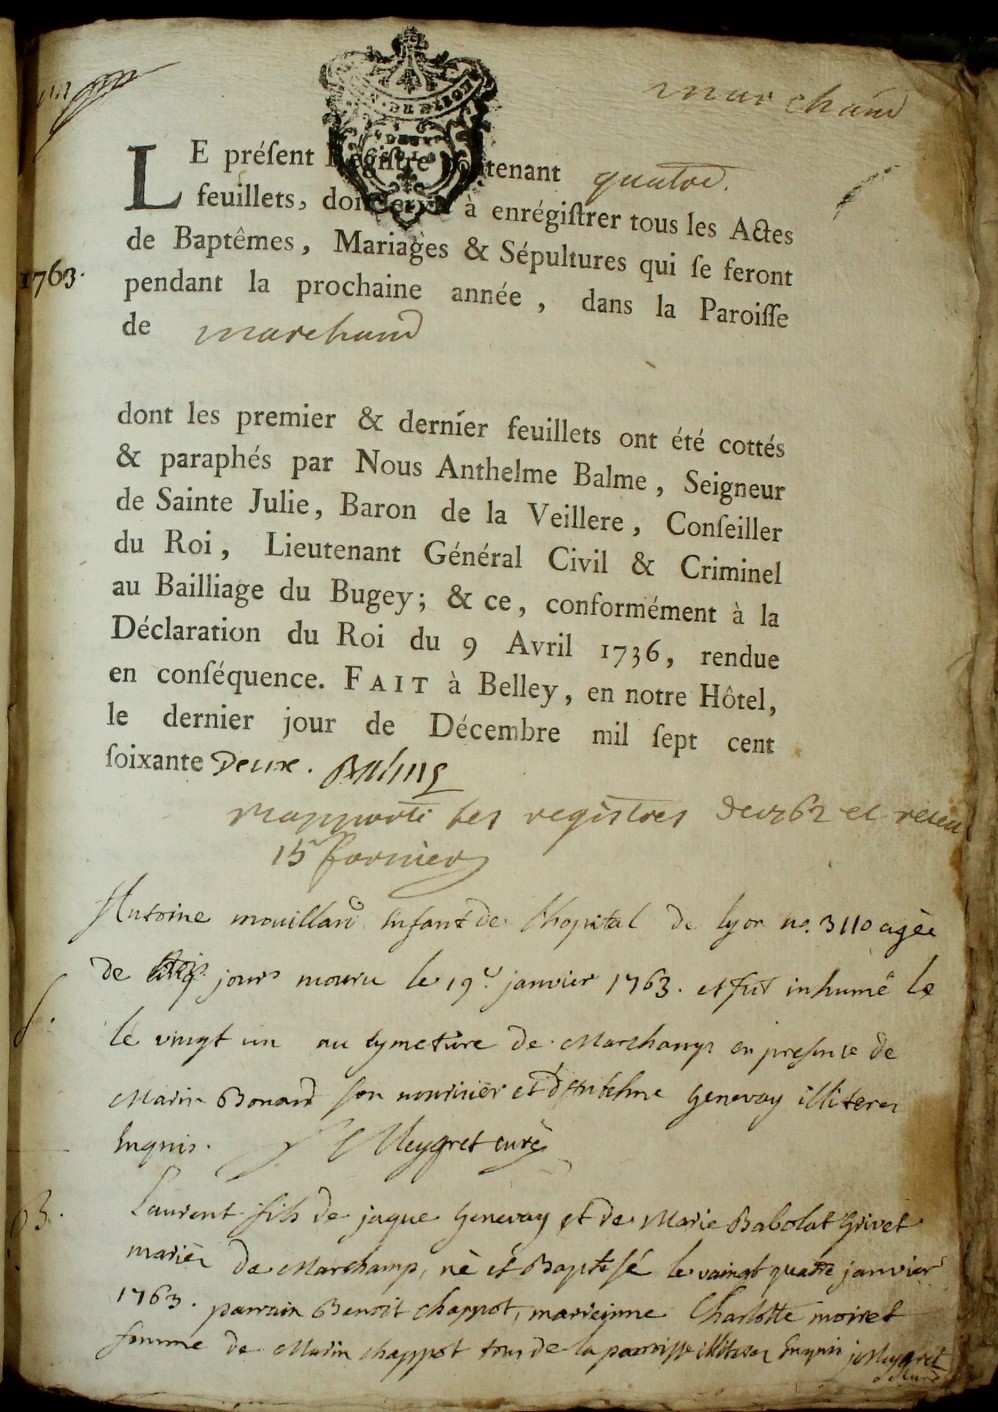 marchand
LE préſent Regiſtre contenant quatre.
feuillets, doit à enrégiſtrer tous les Actes
de Baptêmes, Mariages & Sépultures qui ſe feront
1763.
pendant la prochaine année, dans la Paroiſſe
de marchand
dont les premier & dernier feuillets ont été cottés
& paraphés par Nous Anthelme Balme, Seigneur
de Sainte Julie, Baron de la Veillere, Conſeiller
du Roi, Lieutenant Général Civil & Criminel
au Bailliage du Bugey; & ce, conformément à la
Déclaration du Roi du 9 Avril 1736, rendue
en conſéquence. FAIT à Belley, en notre Hôtel,
le dernier jour de Décembre mil ſept cent
ſoixante Deux. Balme
rapporté les registres de 1762 et
15 fevrier
Antoine mouillard Enfant de l'hopital de lyon no. 3110 agée
de jours mouru le 19e janvier 1763. et fut inhumé le
le vingt un au symetiere de Marchamp en presence de
Marin Bonard son nouricier et D'Anthelme Genevay illiteres
Enquis. Meygret curé
Laurent fils de jaque Genevay et de Marie Babolat Grivet
mariés de Marchamp, né et Baptisé le vaingt quatre janvier
1763. parrain Benoit chappot, mareynne Charlotte moiret
femme de Marin chappot tous de la parroisse illiteres Enquis Meygret
curé